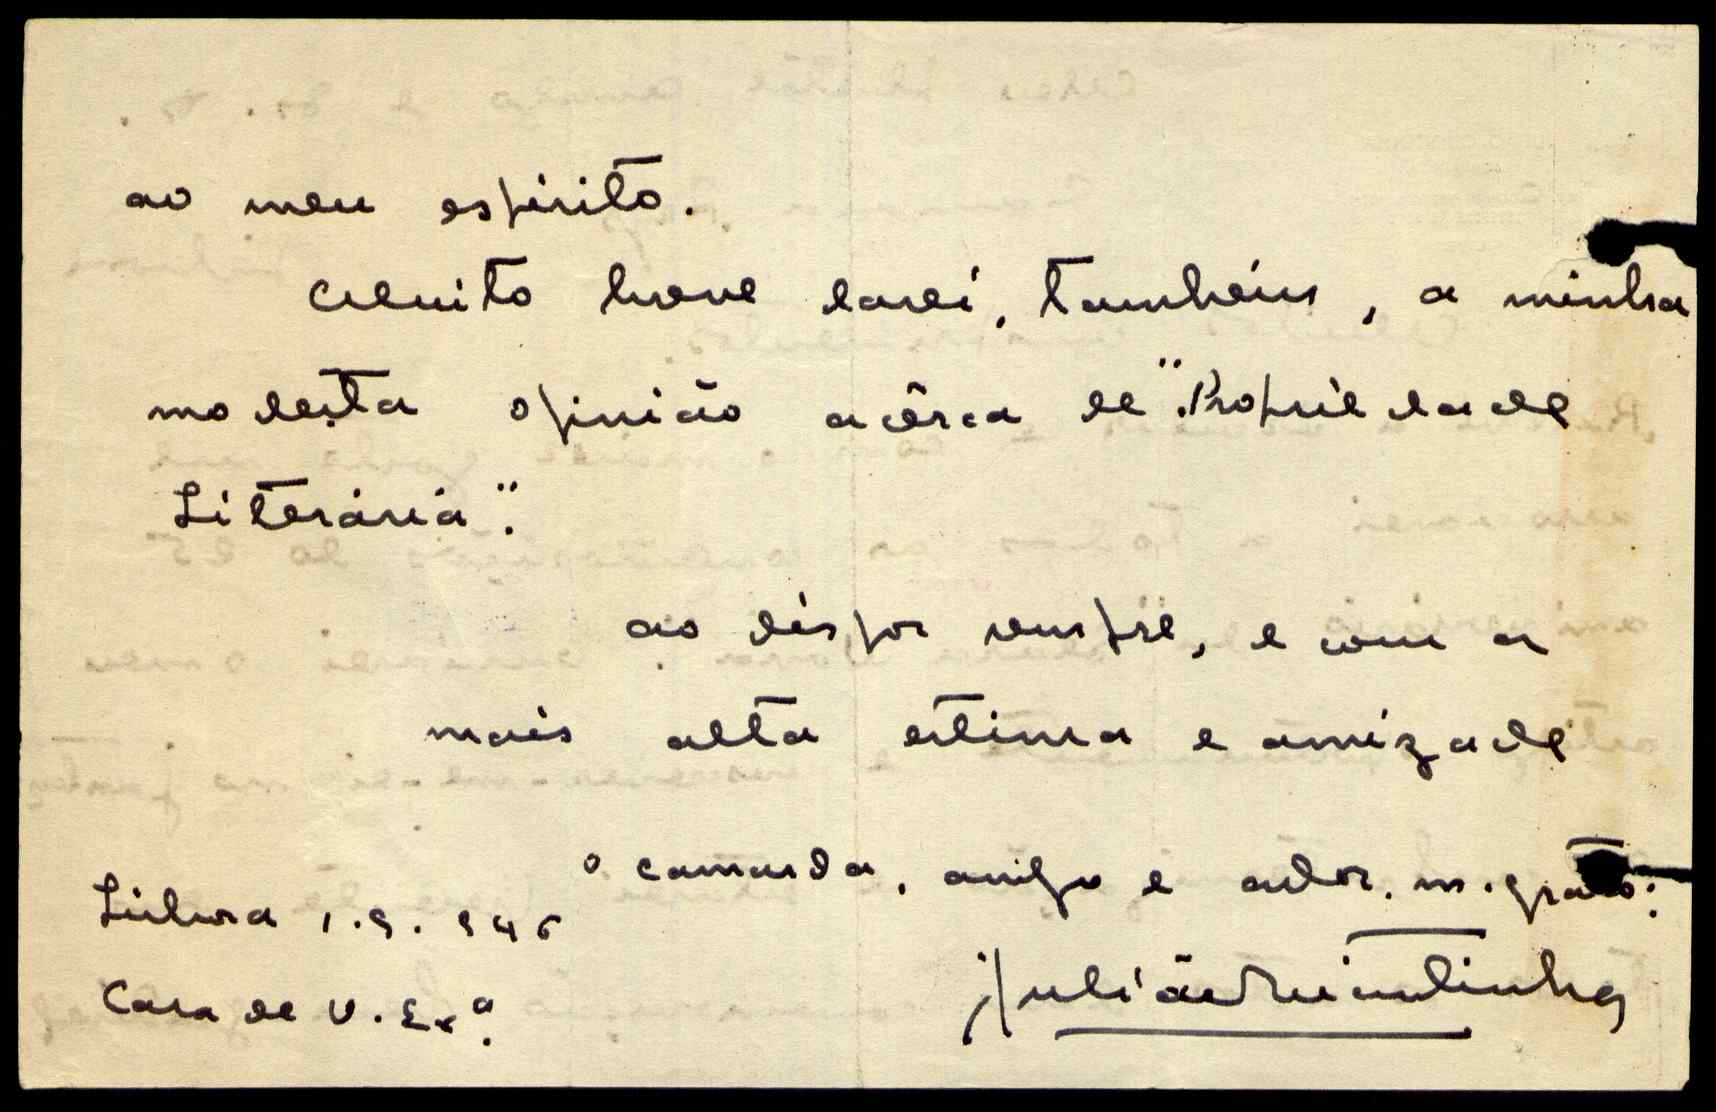 ao meu espírito.
Muito breve darei, também, a minha
modesta opinião acêrca de "Propriedade
Literária".
ao dispor sempre, e com a
mais alta estima e amizade
o camarda, amigo e ador. m. grato:
Lisboa 1.9.946
Casa de V. Exª.
Julião Quintinha